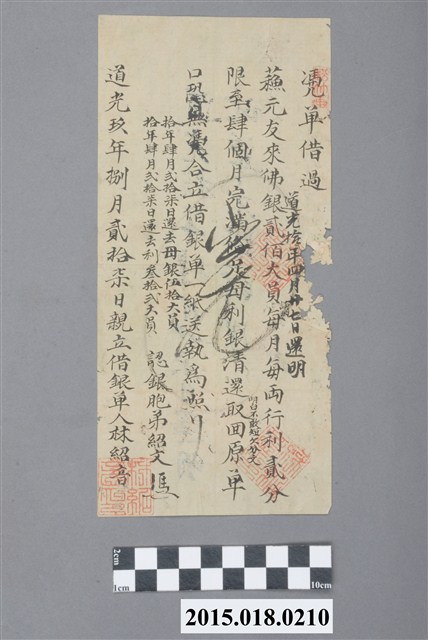 憑单借過
蘓元友來佛銀貳佰大員每月每両行利貳分
道光拾年四月廿七日還明
限至肆個月完滿 母利銀清還取回原单
明白不敢短欠分文
口恐無憑合立借銀单一紙送執為照
拾年肆月弍拾柒日還去母銀伍拾大員
拾年肆月弍拾柒日還去利叁拾弍大員
認銀胞弟紹文
道光玖年捌月貳拾柒日親立借銀单人林紹音
2cm
1cm
10cm
2015.018.0210